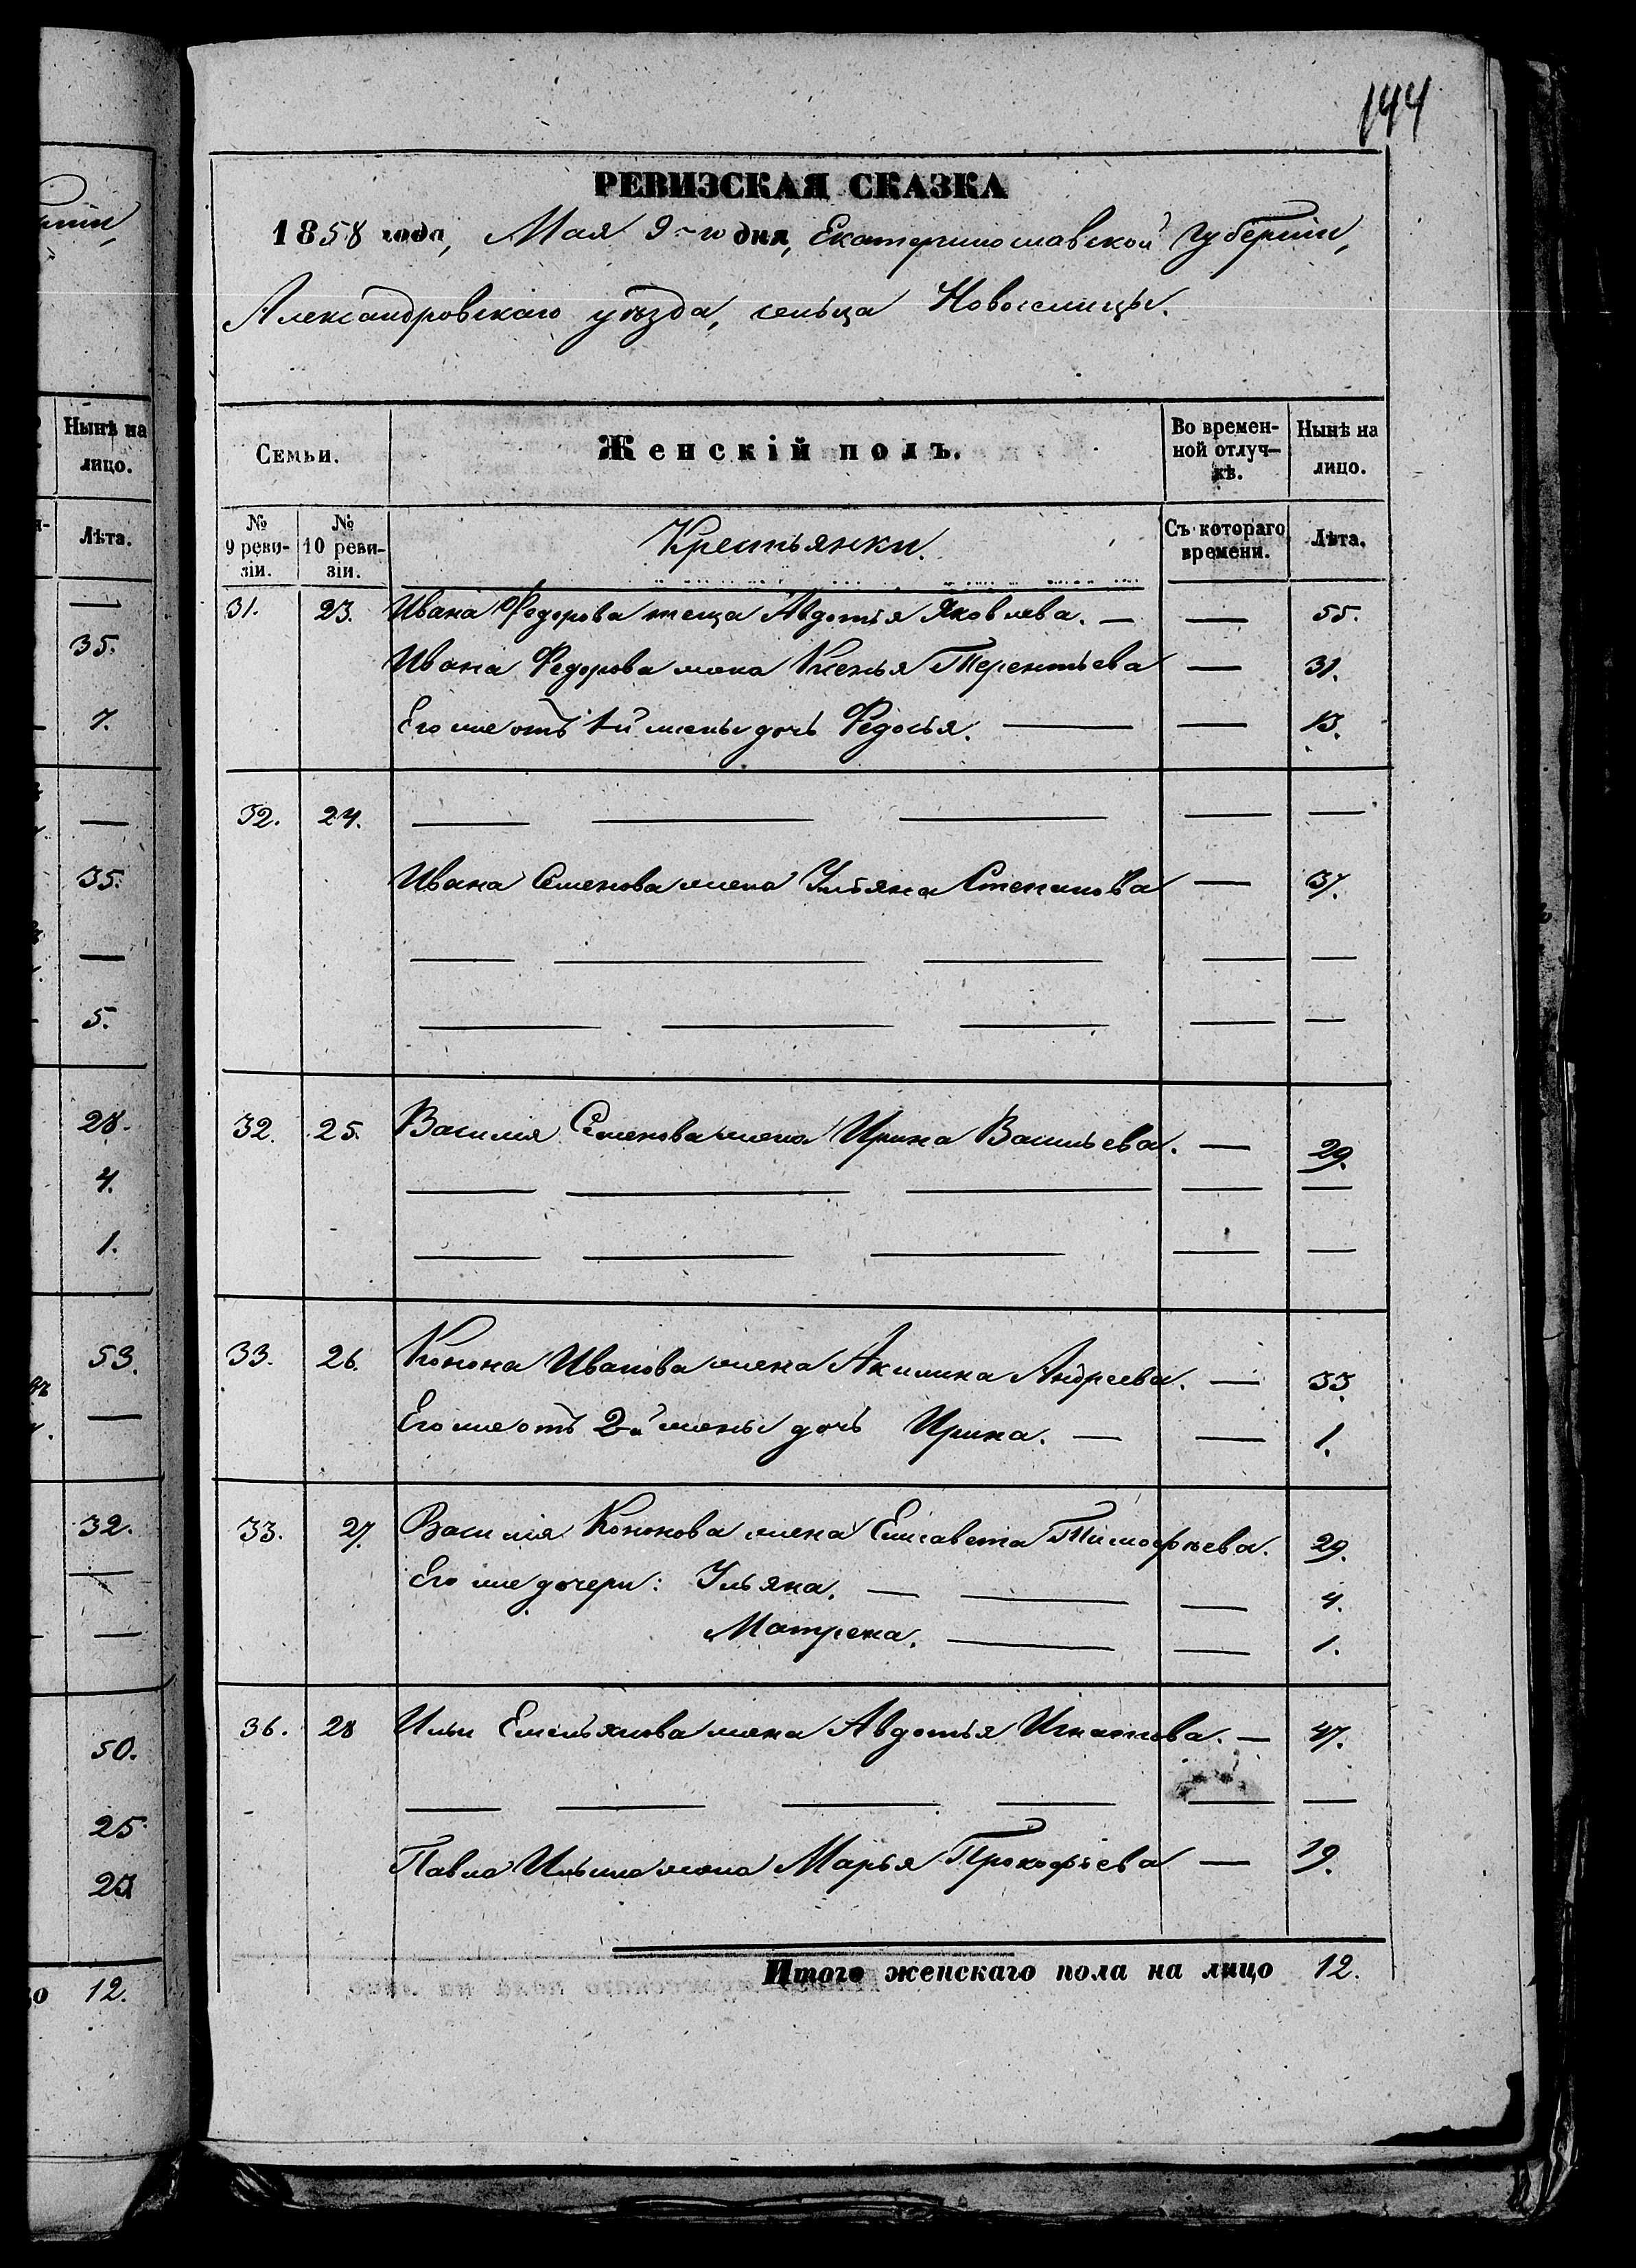 144
РЕВИЗСКАЯ СКАЗКА
1858 года, Мая 9-го дня, Екатеринославской Губерніи,
Александровскаго уѣзда, сельца Новоселицы.
Нынѣ на
лицо.
Лѣта.
35.
7.
35.
5.
28.
4.
1.
53.
32.
50.
25
12.
Семьи. Женскій полъ. Во времен- Нынѣ на
ной отлуч- лицо.
кѣ.
№ 9 реви-зіи. № 10 реви-зіи. Крестьянки. Съ котораго времени. Лѣта.
31. 23. Ивана Федорова теща Авдотья Яковлева. — — 55.
Ивана Федорова жена Ксенья Терентьева — 31.
Его же отъ 1й жены дочь Федосья. — — 13.
32. 24. — — — — —
Ивана Семенова жена Ульяна Степанова — 37.
— — — — —
— — — — —
32. 25. Василія Семенова жена Ирина Васильева. — 29.
— — — — —
— — — — —
33. 26. Конона Иванова жена Акилина Андреева. — 33.
Его же отъ 2й жены дочь Ирина. — — 1.
33. 27. Василія Кононова жена Елисавета Тимофѣева. 29.
Его же дочери: Ульяна. — — — 4.
Матрена. — — 1.
36. 28 Ильи Емельянова жена Авдотья Игнатова. — 47.
— — — — — —
Павла Ильина жена Марья Прокофьева — 19.
Итого женскаго пола на лицо 12.